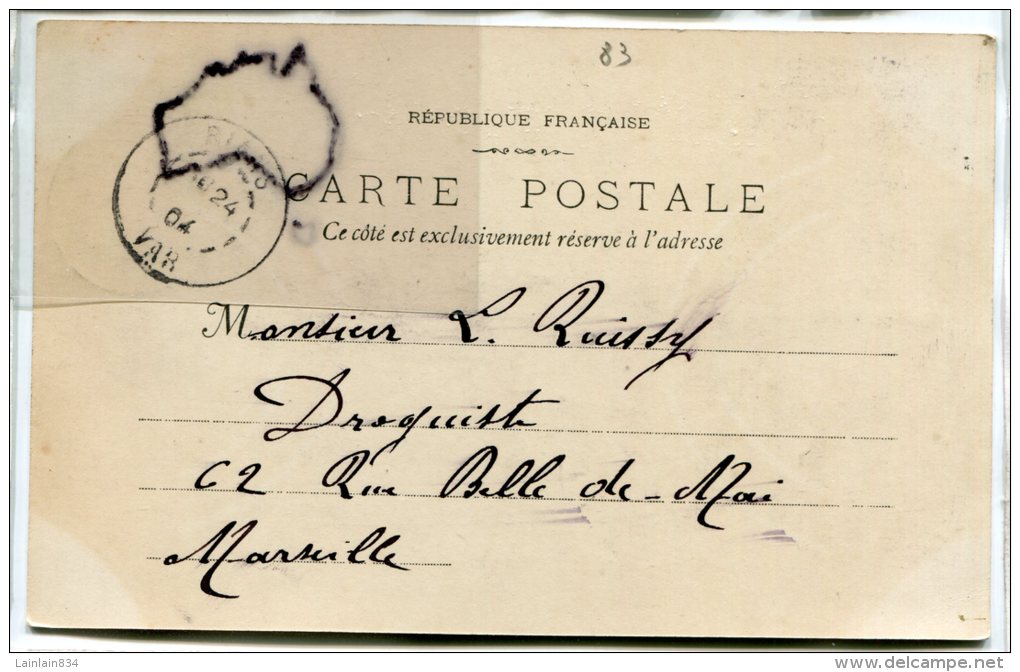 83
RÉPUBLIQUE FRANÇAISE
CARTE POSTALE
Ce côté est exclusivement réservé à l'adresse
24
04
VAR
Monsieur L. Ruissy
Droguiste
62 Rue Belle de-Mai
Marseille
Lainlain834
www.delcampe.net